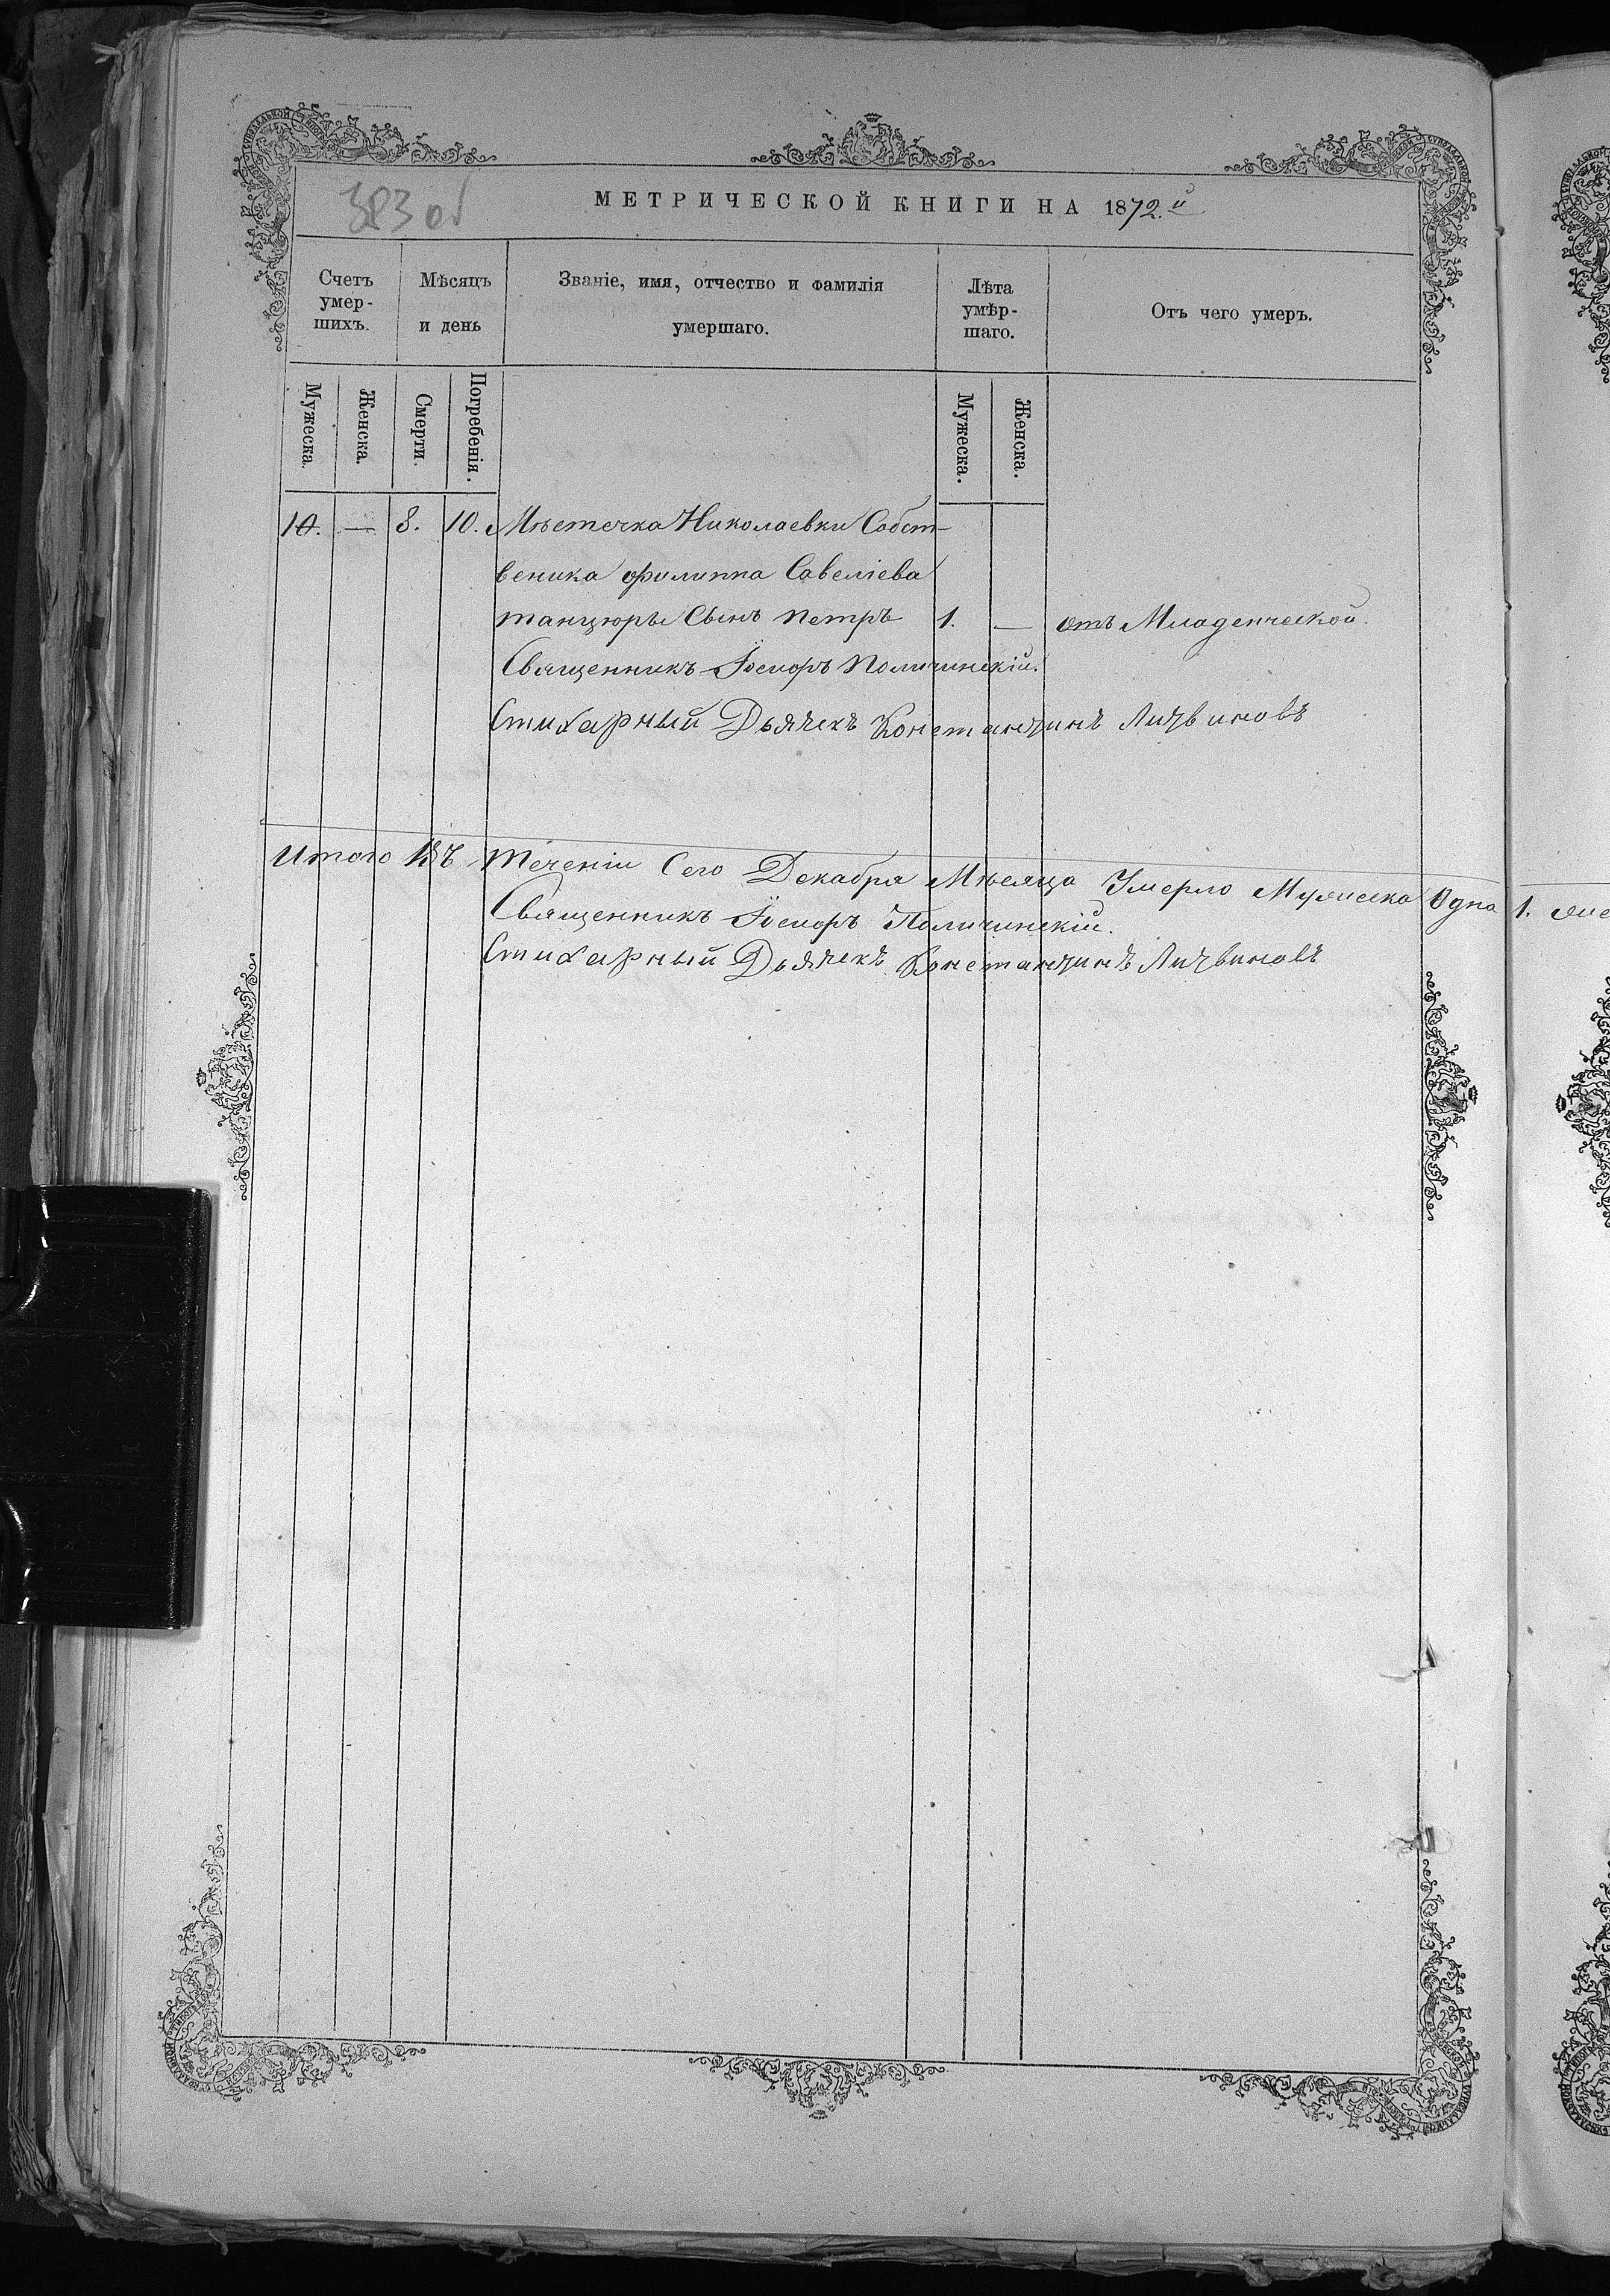 383 об
МЕТРИЧЕСКОЙ КНИГИ НА 1872.й
Счетъ умер- шихъ.
Мѣсяцъ и день
Званіе, имя, отчество и фамилія умершаго.
Лѣта умѣр- шаго.
Отъ чего умеръ.
Мужеска. Женска. Смерти. Погребенія. Мужеска. Женска.
10. — 8. 10. Мѣстечка Николаевки Собст-
веника Филиппа Савеліева
танцюры Сынъ Петръ 1. — отъ Младенческой.
Священникъ Іосифъ Поличинскій.
Стихарный Дьячекъ Константинъ Литвиновъ
Итого Въ теченіи Сего Декабря Мѣсяца Умерло Мужеска Одна 1.
Священникъ Іосифъ Поличинскій.
Стихарный Дьячекъ Константинъ Литвиновъ